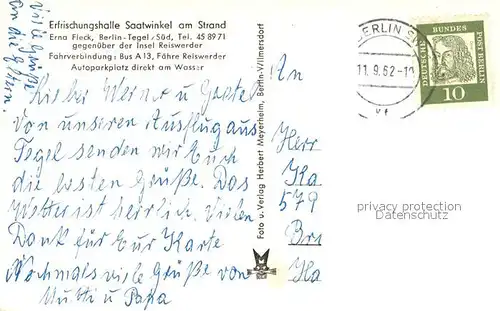 Viele Grüße
an die Eltern.
Erfrischungshalle Saatwinkel am Strand
Erna Fleck, Berlin-Tegel/Süd, Tel. 45 89 71
gegenüber der Insel Reiswerder
Fahrverbindung: Bus A 13, Fähre Reiswerder
Autoparkplatz direkt am Wasser
Lieber Werner u
von unseren Ausflug aus
Tegel senden wir Euch
die besten Grüße. Das
Wetter ist herrlich. Vielen
Dank für Eur Karte
Nochmals viele Grüße von
Mutti u Papa
Foto u. Verlag Herbert Meyerheim, Berlin-Wilmersdorf
An
Herr
Ka
579
Bri
Ha
BERLIN SW
11.9.62-1
DEUTSCHE BUNDES POST BERLIN
10
privacy protection
Datenschutz